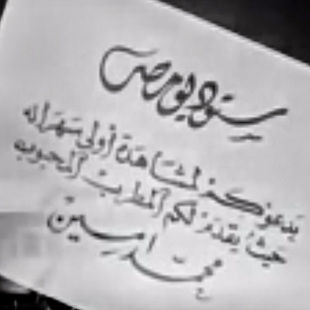 ستوديو مصر
يدعوكم لمشاهدة أولى سهراته
حيث يقدم لكم المطرب المحبوب
محمد امين